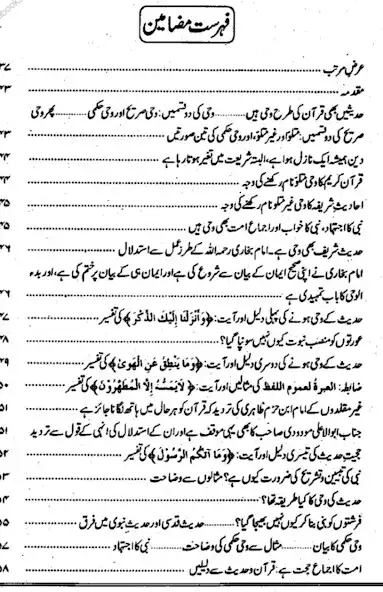 فہرست مضامین
عرض مرتب ۳۷
مقدمہ ۴۳
حدیثیں بھی قرآن کی طرح وحی ہیں ...... وحی کی دو قسمیں: وحی صریح اور وحی حکمی ...... پھر وحی
صریح کی دو قسمیں: متلو اور غیر متلو، اور وحی حکمی کی تین صورتیں ۴۳
دین ہمیشہ ایک نازل ہوا ہے، البتہ شریعت میں تغیر ہوتا رہا ہے ۴۴
قرآن کریم کا وحی متلو نام رکھنے کی وجہ ۴۴
احادیث شریفہ کا وحی غیر متلو نام رکھنے کی وجہ ۴۵
نبی کا اجتہاد، نبی کا خواب اور اجماع امت بھی وحی ہیں ۴۵
حدیث شریف بھی وحی ہے۔ امام بخاری رحمہ اللہ کے طرز عمل سے استدلال ۴۶
امام بخاری نے اپنی صحیح ایمان کے بیان سے شروع کی ہے اور ایمان ہی کے بیان پر ختم کی ہے، اور بدء
الوحی کا باب تمہیدی ہے ۴۶
حدیث کے وحی ہونے کی پہلی دلیل اور آیت: ﴿وَأَنْزَلْنَا إِلَيْكَ الذِّكْرَ﴾ کی تفسیر ۴۷
عورتوں کو منصب نبوت کیوں نہیں سونپا گیا؟ ۴۸
حدیث کے وحی ہونے کی دوسری دلیل اور آیت: ﴿وَمَا يَنْطِقُ عَنِ الْهَوىٰ﴾ کی تفسیر ۴۹
ضابطہ: العبرة لعموم اللفظ کی مثالیں اور آیت: ﴿لاَ يَمَسُّهُ إِلَّا الْمُطَهَّرُوْنَ﴾ کی تفسیر ۵۰
غیر مقلدوں کے امام ابن حزم ظاہری کی تردید کہ قرآن کو ہر حال میں ہاتھ لگانا جائز ہے ۵۱
جناب ابوالاعلی مودودی صاحب کا بھی یہی موقف ہے اور ان کے استدلال کی انہی کے قول سے تردید ۵۱
حجیت حدیث کی تیسری دلیل اور آیت: ﴿وَمَا آتٰكُمُ الرَّسُوْلُ﴾ کی تفسیر ۵۲
نبی کی تبیین و تشریح کی ضرورت کیوں ہے؟ مثالوں سے وضاحت ۵۳
حدیث کی وحی کا کیا طریقہ تھا؟ ۵۴
فرشتوں کو نبی بنا کر کیوں نہیں بھیجا گیا؟ ...... حدیث قدسی اور حدیث نبوی میں فرق ۵۵
وحی حکمی کا بیان ...... مثال سے وحی حکمی کی وضاحت ...... نبی کا اجتہاد ۵۷
امت کا اجماع حجت ہے: قرآن وحدیث سے دلیلیں ۵۸